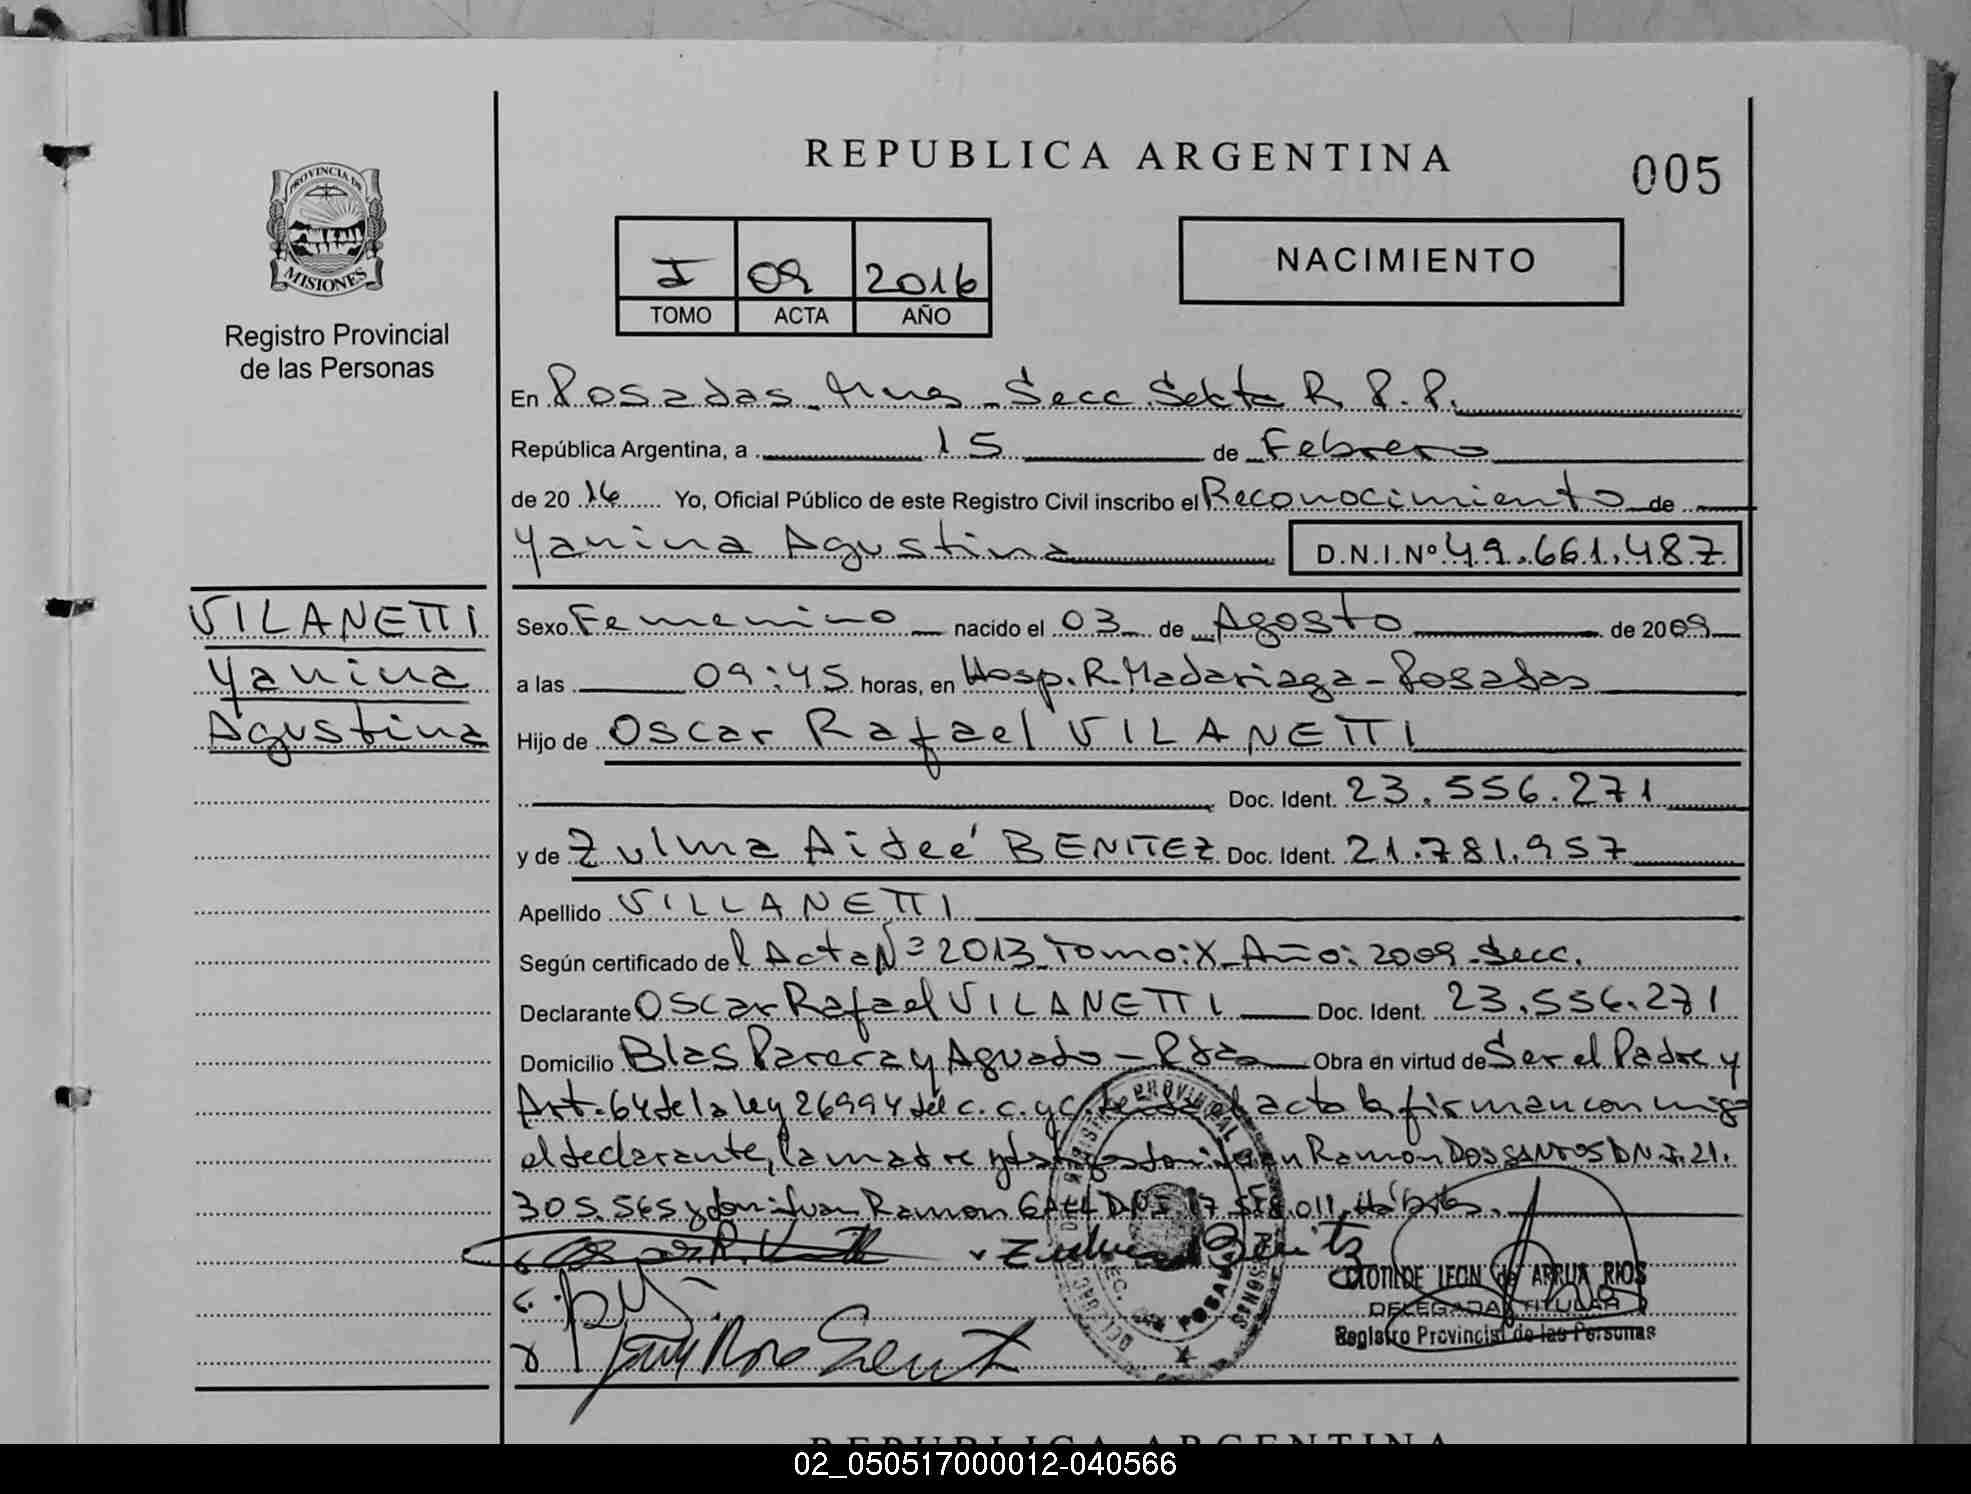 REPUBLICA ARGENTINA
005
PROVINCIA DE
MISIONES
Registro Provincial
de las Personas
I 09 2016
TOMO ACTA AÑO
NACIMIENTO
En Posadas - Mnes - Secc. Sexta R. P. P.
República Argentina, a 15 de Febrero
de 20 16 Yo, Oficial Público de este Registro Civil inscribo el Reconocimiento de
Yanina Agustina D.N.I.Nº 49.661.487
VILANETTI
Yanina
Agustina
Sexo Femenino nacido el 03 de Agosto de 2009
a las 09:45 horas, en Hosp. R. Madariaga - Posadas
Hijo de Oscar Rafael VILANETTI
Doc. Ident. 23.556.271
y de Zulma Aideé BENITEZ Doc. Ident. 21.781.957
Apellido VILLANETTI
Según certificado del Acta Nº 2013 Tomo: X - Año: 2009 - Secc.
Declarante Oscar Rafael VILANETTI Doc. Ident. 23.556.271
Domicilio Blas Parera y Aguado - Pdas Obra en virtud de Ser el Padre y
Art. 64 de la ley 26994 del c. c. y c. acta la firman con migo
el declarante, la madre y testigos don Juan Ramon DOS SANTOS D.N.I. 21.
305.565 y don Juan Ramon D.N.I. 17 011. Hábiles.
Zulma Benitez
CLOTILDE LEON de ARRUA RIOS
DELEGADA TITULAR
Registro Provincial de las Personas
REPUBLICA ARGENTINA
02_050517000012-040566